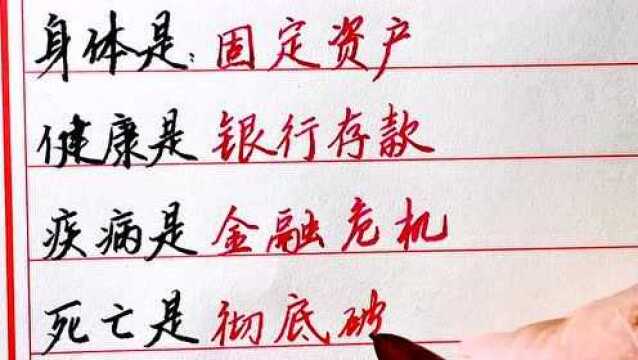 身体是：固定资产
健康是银行存款
疾病是金融危机
死亡是彻底破